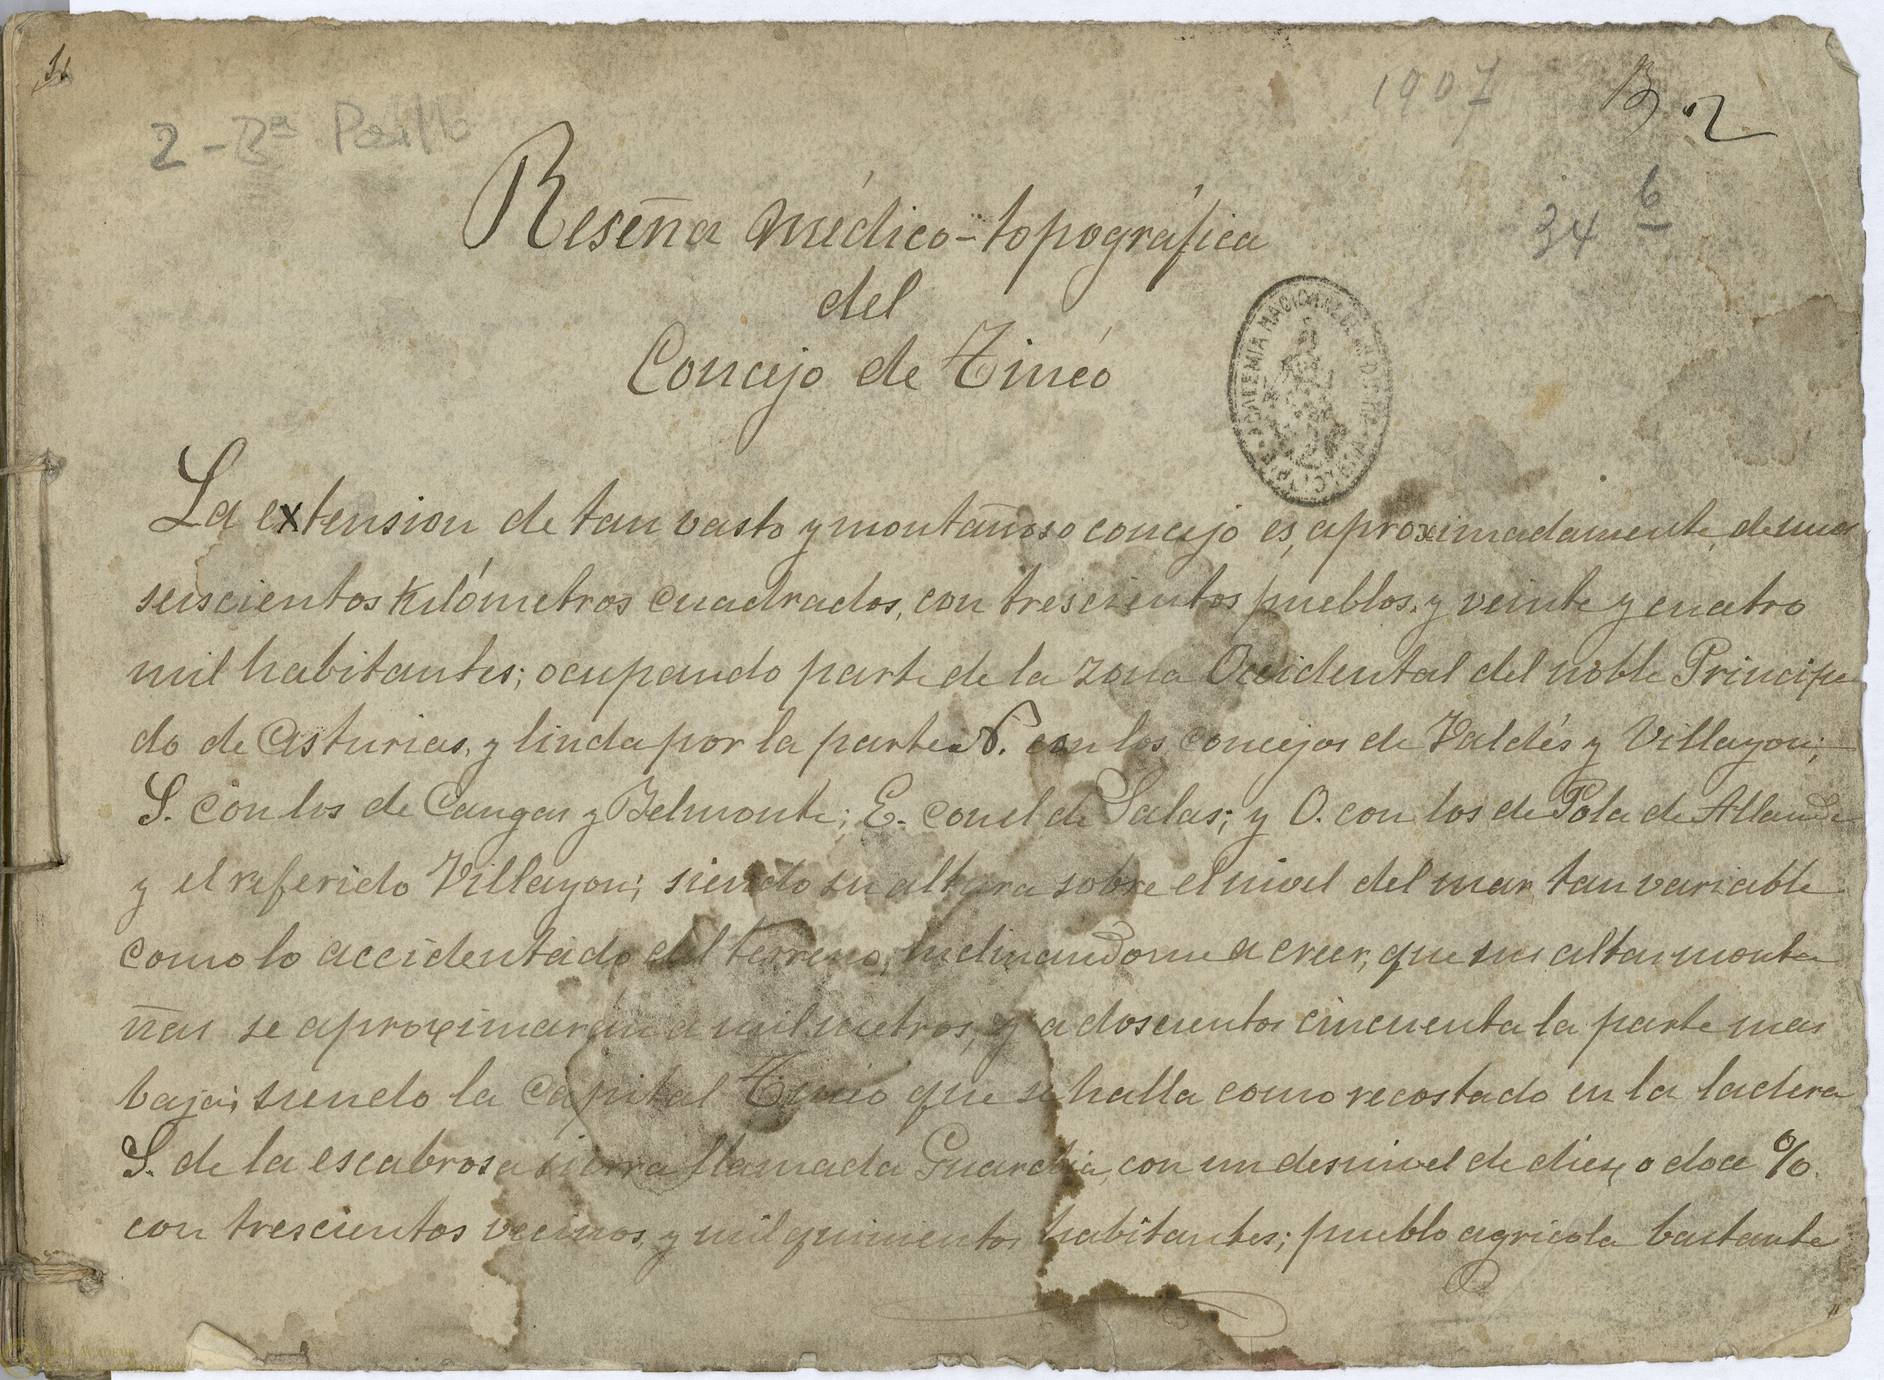 1907
B. 2
2 - 3ª Pasillo
6
34
Reseña médico-topográfica
del
Concejo de Tinéo
ACADEMIA NACIONAL DE MEDICINA
La extension de tan vasto y montañoso concejo es, aproximadamente, de unos
seiscientos kilómetros cuadrados, con trescientos pueblos, y veinte y cuatro
mil habitantes; ocupando parte de la zona Occidental del noble Principa
do de Asturias, y linda por la parte N. con los concejos de Valdés y Villayon;
S. con los de Cangas y Belmonte; E. con el de Salas; y O. con los de Pola de Allande
y el referido Villayon; siendo su altura sobre el nivel del mar, tan variable
como lo accidentado del terreno, inclinandome a creer, que sus altas monta
ñas se aproximaran a mil metros, y a doscientos cincuenta la parte mas
baja; siendo la capital Tineo que se halla como recostado en la ladera
S. de la escabrosa sierra llamada Guardia, con un desnivel de diez o doce %.
con trescientos vecinos, y mil quinientos habitantes; pueblo agricola bastante